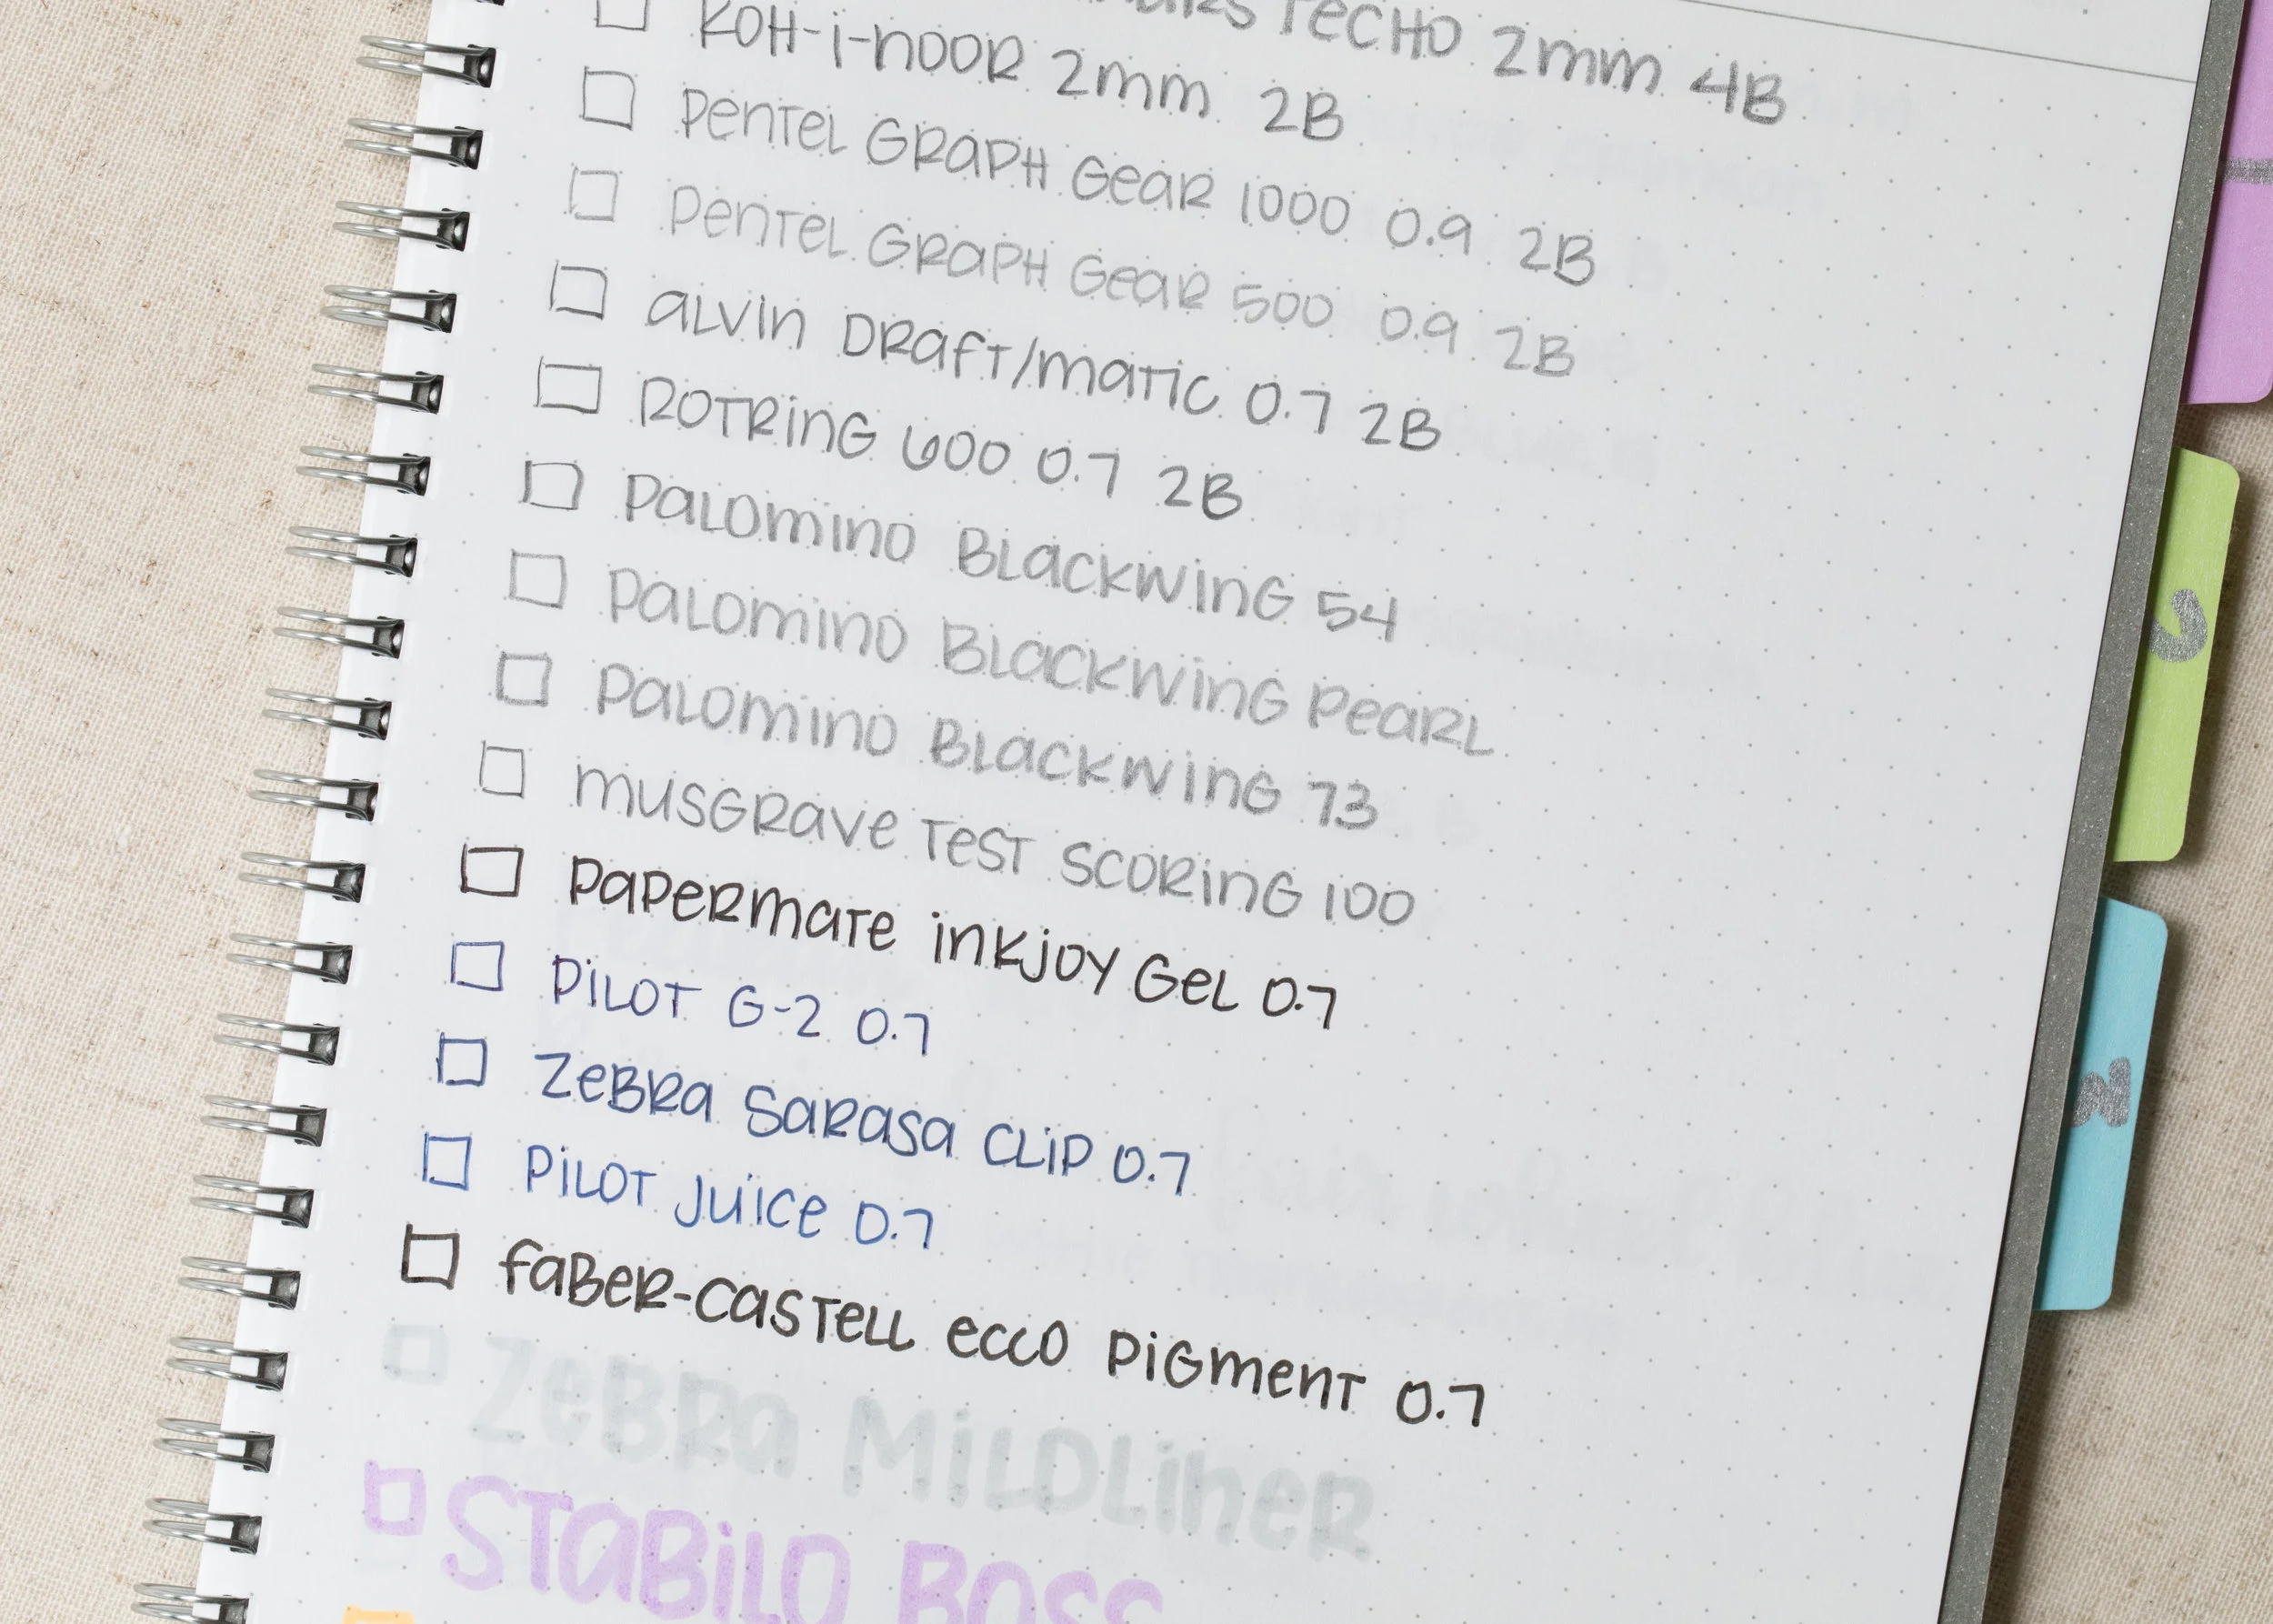 TECHO 2mm 4B
KOH-i-nOOR 2mm 2B
PenTeL GRaPH GeaR 1000 0.9 2B
PenTeL GRaPH GeaR 500 0.9 2B
aLVin DRafT/maTic 0.7 2B
ROTRinG 600 0.7 2B
PaLOminO BLackwinG 54
PaLOminO BLackwinG PeaRL
PaLOminO BLackwinG 73
musGRave TesT scORinG 100
PaPeRmaTe inkjOy GeL 0.7
PiLOT G-2 0.7
ZeBRa SaRasa CLiP 0.7
PiLOT juice 0.7
faBeR-casTeLL ecco PiGmenT 0.7
ZeBRa MiLDLineR
STaBiLO BOSS